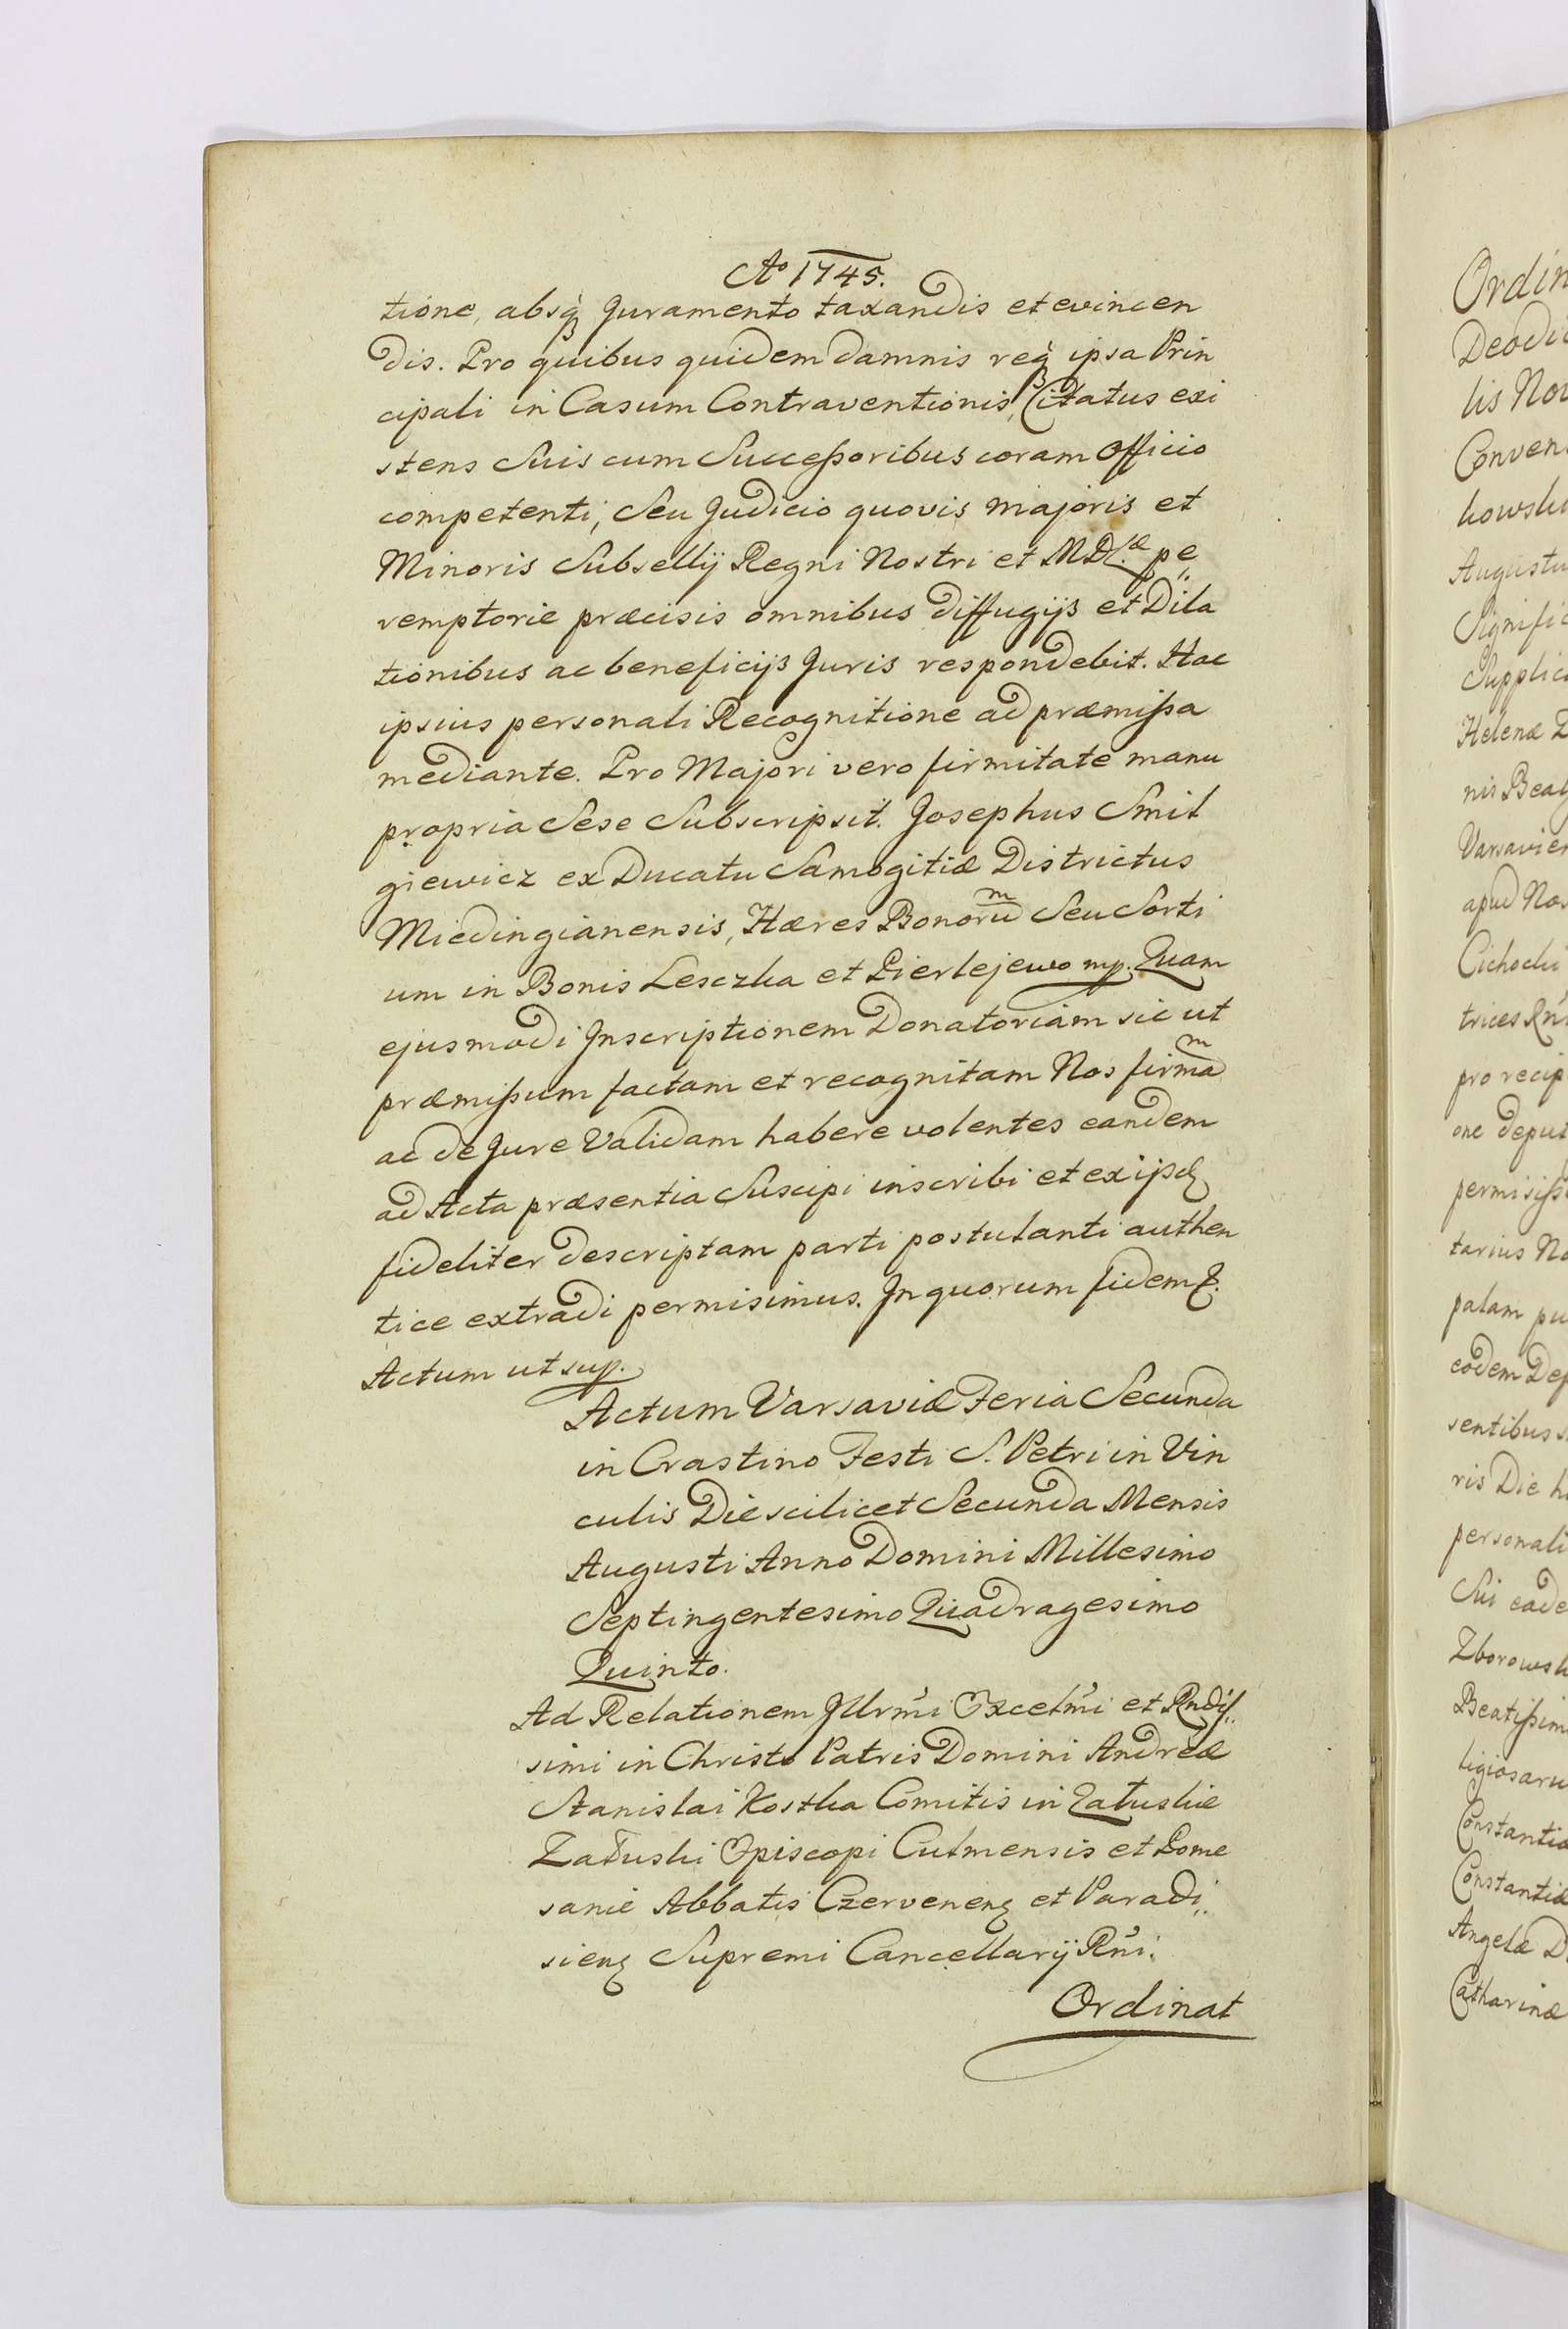 Aº 1745.
tione, absq́ Juramento taxandis et evincen
dis. Pro quibus quidem damnis req́ ipsa Prin
cipali in Casum Contraventionis, Citatus exi
stens Suis cum Successoribus coram Officio
competenti, Seu Judicio quovis majoris et
Minoris Subsellij Regni Nostri et MDLæ pe„
remptorie præcisis omnibus diffugijs et Dila
tionibus ac beneficijs Juris respondebit. Hac
ipsius personali Recognitione ad præmissa
mediante. Pro Majori vero firmitate manu
propria Sese Subscripsit. Josephus Smil
giewicz ex Ducatu Samogitiæ Districtus
Miedingianensis, Hæres Bonorum Seu Sorti
um in Bonis Lesczka et Pierlejewo mp. Quam
ejusmodi Inscriptionem Donatoriam sic ut
præmissum factam et recognitam Nos firmam
ac de Jure Validam habere volentes eandem
ad Acta præsentia Suscipi inscribi et ex ijsd
fideliter descriptam parti postulanti authen
tice extradi permisimus. In quorum fidem &.
Actum ut sup.
Actum Varsaviæ Feria Secunda
in Crastino Festi S. Petri in Vin
culis Die scilicet Secunda Mensis
Augusti Anno Domini Millesimo
Septingentesimo Quadragesimo
Quinto.
Ad Relationem Jllrm̃i Excelm̃i et Rndis„
simi in Christo Patris Domini Andreæ
Stanislai Kostka Comitis in Załuskie
Załuski Episcopi Culmensis et Pome
sanie Abbatis Czervenen et Paradi„
sien Supremi Cancellarij Rñi.
Ordinat
Ordin
Deodi
lis Nov
Conven
kowski
Augustu
Signific
Supplic
Helenæ
nis Bea
Varsavien
apud Nos
Cichocki
trices Rñi
pro recip
one deput
permisiss
tarius No
palam pu
eodem Dep
sentibus
ris Die h
personali
Sui eade
Zborowsk
Beatissim
ligiosaru
Constantia
Constantiæ
Angelæ D
Catharinæ